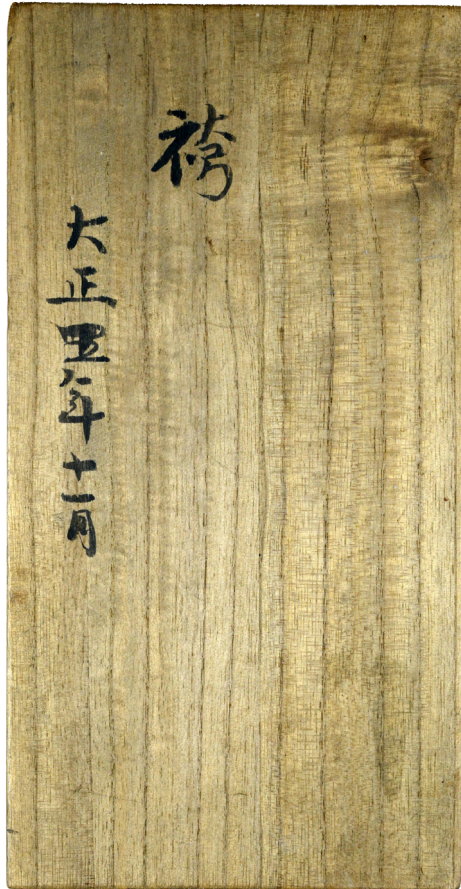 袴
大正四年十一月